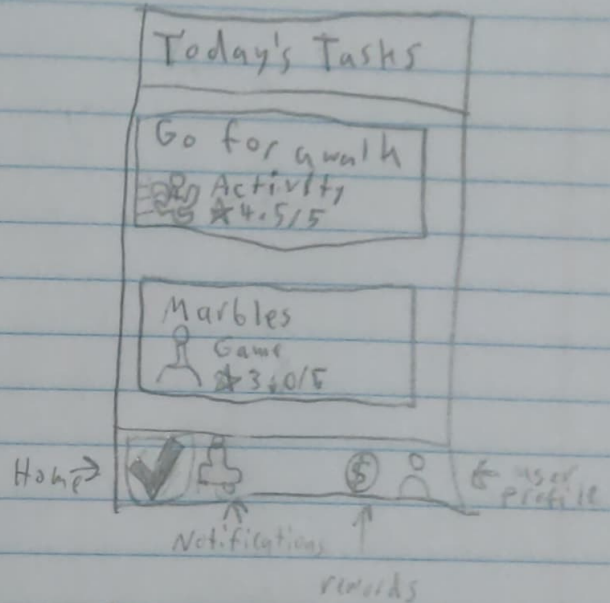 Today's Tasks
Go for a walk
Activity
★4.5/5
Marbles
Game
★3.0/5
Home→
$
← user
profile
Notifications
rewards